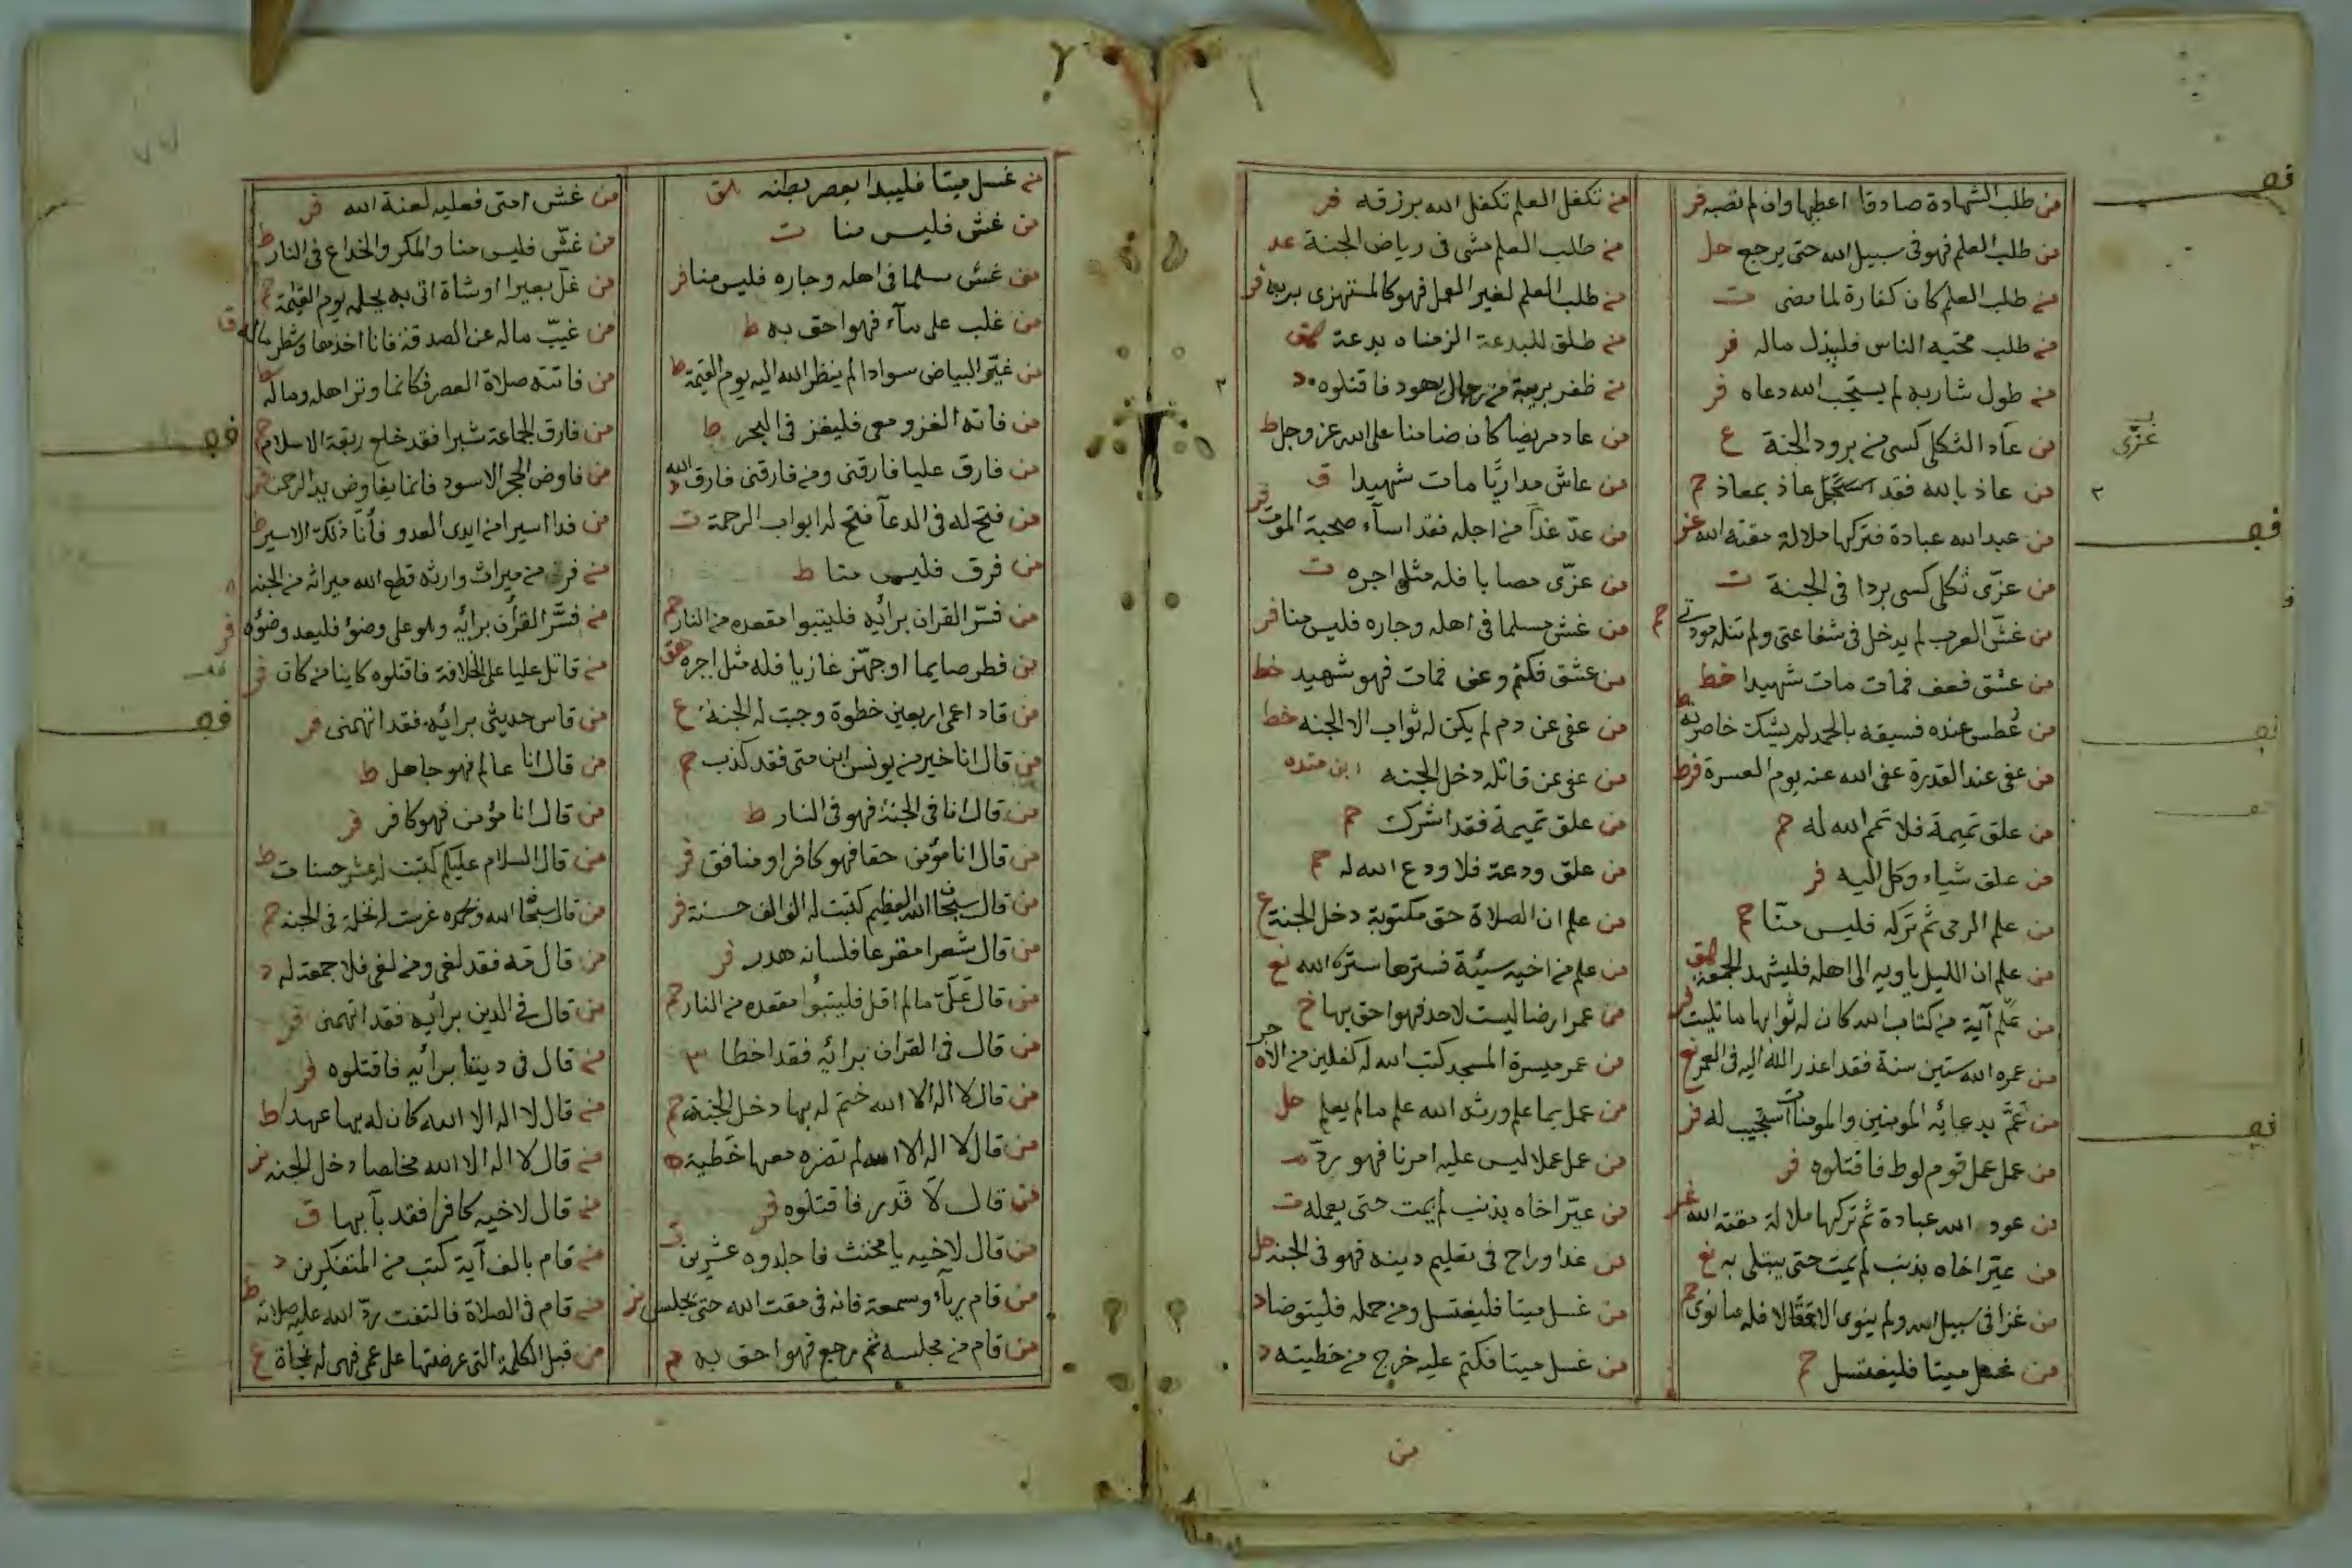 من طلب الشهادة صادقا اعطيها وان لم تصبه فر
من طلب العلم فهو فى سبيل الله حتى يرجع حل
من طلب العلم كان كفارة لما مضى ت
من طلب محبة الناس فليبذل ماله فر
من طول شاربه لم يستجب الله دعاه فر
من عاد الثكلى كسى من برود الجنة ع
من عاذ بالله فقد عاذ بمعاذ حم
من عبد الله عبادة فتركها ملالة مقته الله
من عزّى ثكلى كسى بردا فى الجنة ت
من غشّ العرب لم يدخل فى شفاعتى ولم تنله مودتى حم
من عشق فعف فمات مات شهيدا خط
من عُطس عنده فسبقه بالحمد لم يشتك خاصرته ط
من عفى عند القدرة عفى الله عنه يوم العسرة ط
من علق تميمة فلا تمم الله له حم
من علق شياء وكل اليه فر
من علم الرمى ثم تركه فليس منّا حم
من علم ان الليل ياويه الى اهله فليشهد الجمعة هق
من علّم آية من كتاب الله كان له ثوابها ما تليت
من عمره الله ستين سنة فقد اعذر الله اليه فى العمر
من عَمَّ بدعائه المومنين والمومنات استجيب له فر
من عمل عمل قوم لوط فاقتلوه فر
من عود الله عبادة ثم تركها ملالة مقته الله
من عيّر اخاه بذنب لم يمت حتى يبتلى به
من غزا فى سبيل الله ولم ينوى الا عقالا فله ما نوى حم
من غسل ميتا فليغتسل حم
من تكفل العلم تكفل الله برزقه فر
من طلب العلم مشى فى رياض الجنة عد
من طلب العلم لغير العمل فهو كالمستهزى بربه فر
من طلق للبدعة الزمناه بدعة هق
من ظفر برجال يهود فاقتلوه د
من عاد مريضا كان ضامنا على الله عز وجل ط
من عاش مداريًا مات شهيدا ق
من عدّ غدًا من اجله فقد اسآء صحبة الموت فر
من عزّى مصابا فله مثل اجره ت
من غش مسلما فى اهله وجاره فليس منا فر
من عشق فكتم وعف فمات فهو شهيد خط
من عفى عن دم لم يكن له ثواب الا الجنة خط
من عفى عن قاتله دخل الجنه ابن منده
من علق تميمة فقد اشرك حم
من علق ودعة فلا ودع الله له حم
من علم ان الصلاة حق مكتوبة دخل الجنة ع
من علم من اخيه سيئة فسترها ستره الله
من عمر ارضا ليست لاحد فهو احق بها خ
من عمر ميسرة المسجد كتب الله له كفلين من الاجر
من عمل بما علم ورثه الله علم مالم يعلم حل
من عمل عملا ليس عليه امرنا فهو ردّ
من عيّر اخاه بذنب لم يمت حتى يعمله ت
من غدا وراح فى تعليم دينه فهو فى الجنة حل
من غسل ميتا فليغتسل ومن حمله فليتوضا د
من غسل ميتا فكتم عليه خرج من خطيته د
من
من غسل ميتا فليبدا بعصر بطنه هق
من غش فليس منا ت
من غش مسلما فى اهله وجاره فليس منا فر
من غلب على مآء فهو احق به ط
من غيّر البياض سوادا لم ينظر الله اليه يوم القيمة ط
من فاته الغزو معى فليغز فى البحر ط
من فارق عليا فارقنى ومن فارقنى فارق الله
من فتح له فى الدعآ فتح له ابواب الرحمة ت
من فرق فليس منا ط
من فسّر القران برائيه فليتبوا مقعده من النار حم
من فطر صايما او جهّز غازيا فله مثل اجره هق
من قاد اعمى اربعين خطوة وجبت له الجنة ع
من قال انا خير من يونس ابن متى فقد كذب حم
من قال انا فى الجنة فهو فى النار ط
من قال انا مؤمن حقا فهو كافر او منافق فر
من قال سبحان الله العظيم كتبت له الف الف حسنة فر
من قال شعرا مقزعا فلسانه هدر فر
من قال عَلَىّ مالم اقل فليتبوا مقعده من النار حم
من قال فى القران برائه فقد اخطا
من قال لا اله الا الله ختم له بها دخل الجنة حم
من قال لا اله الا الله لم تضره معها خطية
من قال لا قدر فاقتلوه فر
من قال لاخيه يا مخنث فاجلدوه عشرين ت
من قام ريآء وسمعة فانه فى مقت الله حتى يجلس
من قام من مجلسه ثم رجع فهو احق به م
من غش امتى فعليه لعنة الله فر
من غشّ فليس منا والمكر والخداع فى النار ط
من غلّ بعيرا او شاة اتى به يحمله يوم القيمة حم
من غيّب ماله عن الصدقة فانا اخذها وشطر ماله ق
من فاتته صلاة العصر فكانما وتر اهله وماله ط
من فارق الجماعة شبرا فقد خلع ربقة الاسلام حم
من فاوض الحجر الاسود فانما يفاوض يد الرحمن
من فدا اسيرا من ايدى العدو فأنا ذلك الاسير ط
من فر من ميراث وارثه قطع الله ميراثه من الجنة
من فسّر القرأن برائيه وهو على وضؤ فليعد وضؤه فر
من قاتل عليا على الخلافة فاقتلوه كاينا من كان فر
من قاس حديثى برائيه فقد اتهمنى فر
من قال انا عالم فهو جاهل ط
من قال انا مؤمن فهو كافر فر
من قال السلام عليكم كتبت له عشر حسنات ط
من قال سبحان الله وبحمده غرست له نخلة فى الجنة حم
من قال مه فقد لغى ومن لغى فلا جمعة له د
من قال فى الدين برائيه فقد اتهمنى فر
من قال فى ديننا برائيه فاقتلوه فر
من قال لا اله الا الله كان له بها عهد ط
من قال لا اله الا الله مخلصا دخل الجنة
من قال لاخيه كافرا فقد بآ بها ق
من قام بالف آية كتب من المتفكرين د
من قام فى الصلاة فالتفت ردّ الله عليه صلاته ط
من قبل الكلمة التى عرضتها على عمى فهى له نجاة ع